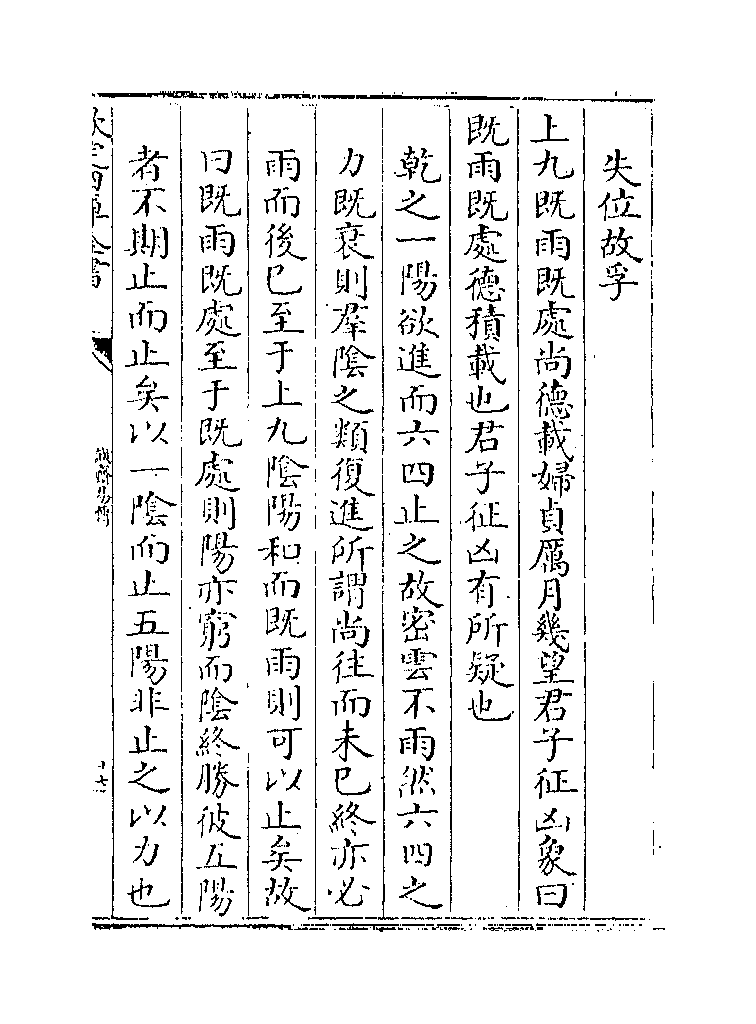 失位故孚
上九既雨既處尚德載婦貞厲月幾望君子征凶象曰
既雨既處德積載也君子征凶有所疑也
乾之一陽欲進而六四止之故密雲不雨然六四之
力既衰則羣陰之類復進所謂尚往而未已終亦必
雨而後已至于上九陰陽和而既雨則可以止矣故
曰既雨既處至于既處則陽亦窮而陰終勝彼五陽
者不期止而止矣以一陰而止五陽非止之以力也
欽定四庫全書
誠齋易傳